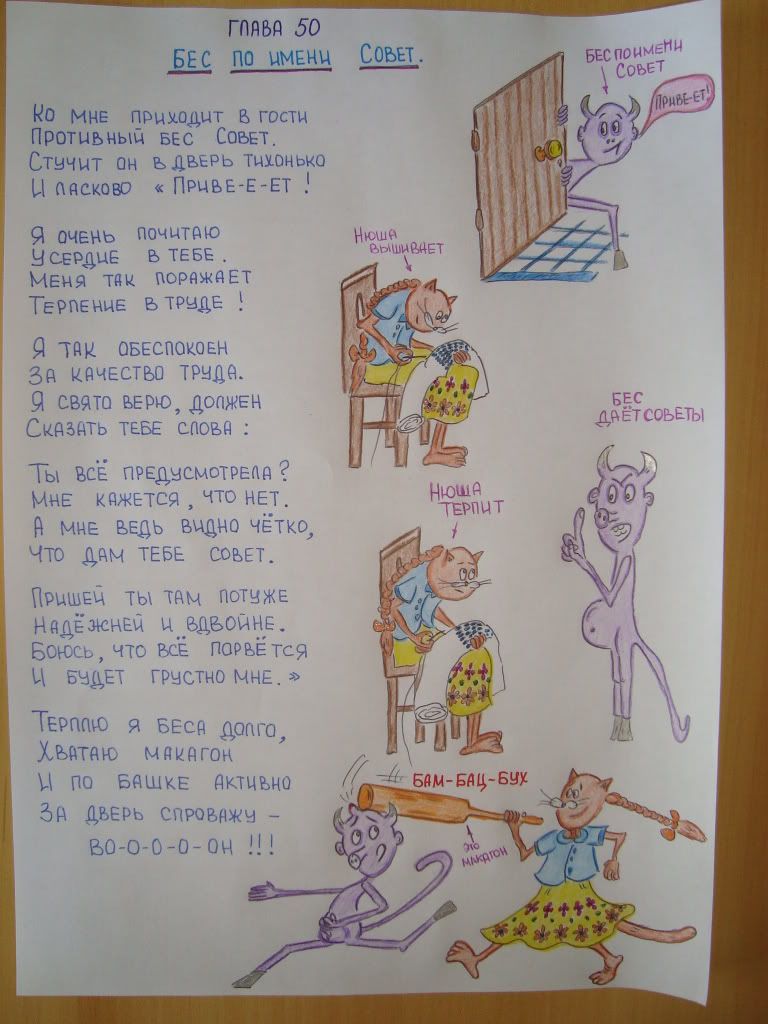 ГЛАВА 50
БЕС ПО ИМЕНИ СОВЕТ.
КО МНЕ ПРИХОДИТ В ГОСТИ
ПРОТИВНЫЙ БЕС СОВЕТ.
СТУЧИТ ОН В ДВЕРЬ ТИХОНЬКО
И ЛАСКОВО « ПРИВЕ-Е-ЕТ !
Я ОЧЕНЬ ПОЧИТАЮ
УСЕРДИЕ В ТЕБЕ.
МЕНЯ ТАК ПОРАЖАЕТ
ТЕРПЕНИЕ В ТРУДЕ !
Я ТАК ОБЕСПОКОЕН
ЗА КАЧЕСТВО ТРУДА.
Я СВЯТО ВЕРЮ, ДОЛЖЕН
СКАЗАТЬ ТЕБЕ СЛОВА :
ТЫ ВСЁ ПРЕДУСМОТРЕЛА ?
МНЕ КАЖЕТСЯ, ЧТО НЕТ.
А МНЕ ВЕДЬ ВИДНО ЧЁТКО,
ЧТО ДАМ ТЕБЕ СОВЕТ.
ПРИШЕЙ ТЫ ТАМ ПОТУЖЕ
НАДЁЖНЕЙ И ВДВОЙНЕ.
БОЮСЬ, ЧТО ВСЁ ПОРВЁТСЯ
И БУДЕТ ГРУСТНО МНЕ. »
ТЕРПЛЮ Я БЕСА ДОЛГО,
ХВАТАЮ МАКАГОН
И ПО БАШКЕ АКТИВНО
ЗА ДВЕРЬ СПРОВАЖУ –
ВО-О-О-О-ОН !!!
БЕС ПО ИМЕНИ
СОВЕТ
ПРИВЕ-ЕТ!
НЮША
ВЫШИВАЕТ
БЕС
ДАЁТ СОВЕТЫ
НЮША
ТЕРПИТ
БАМ-БАЦ-БУХ
ЭТО
МАКАГОН